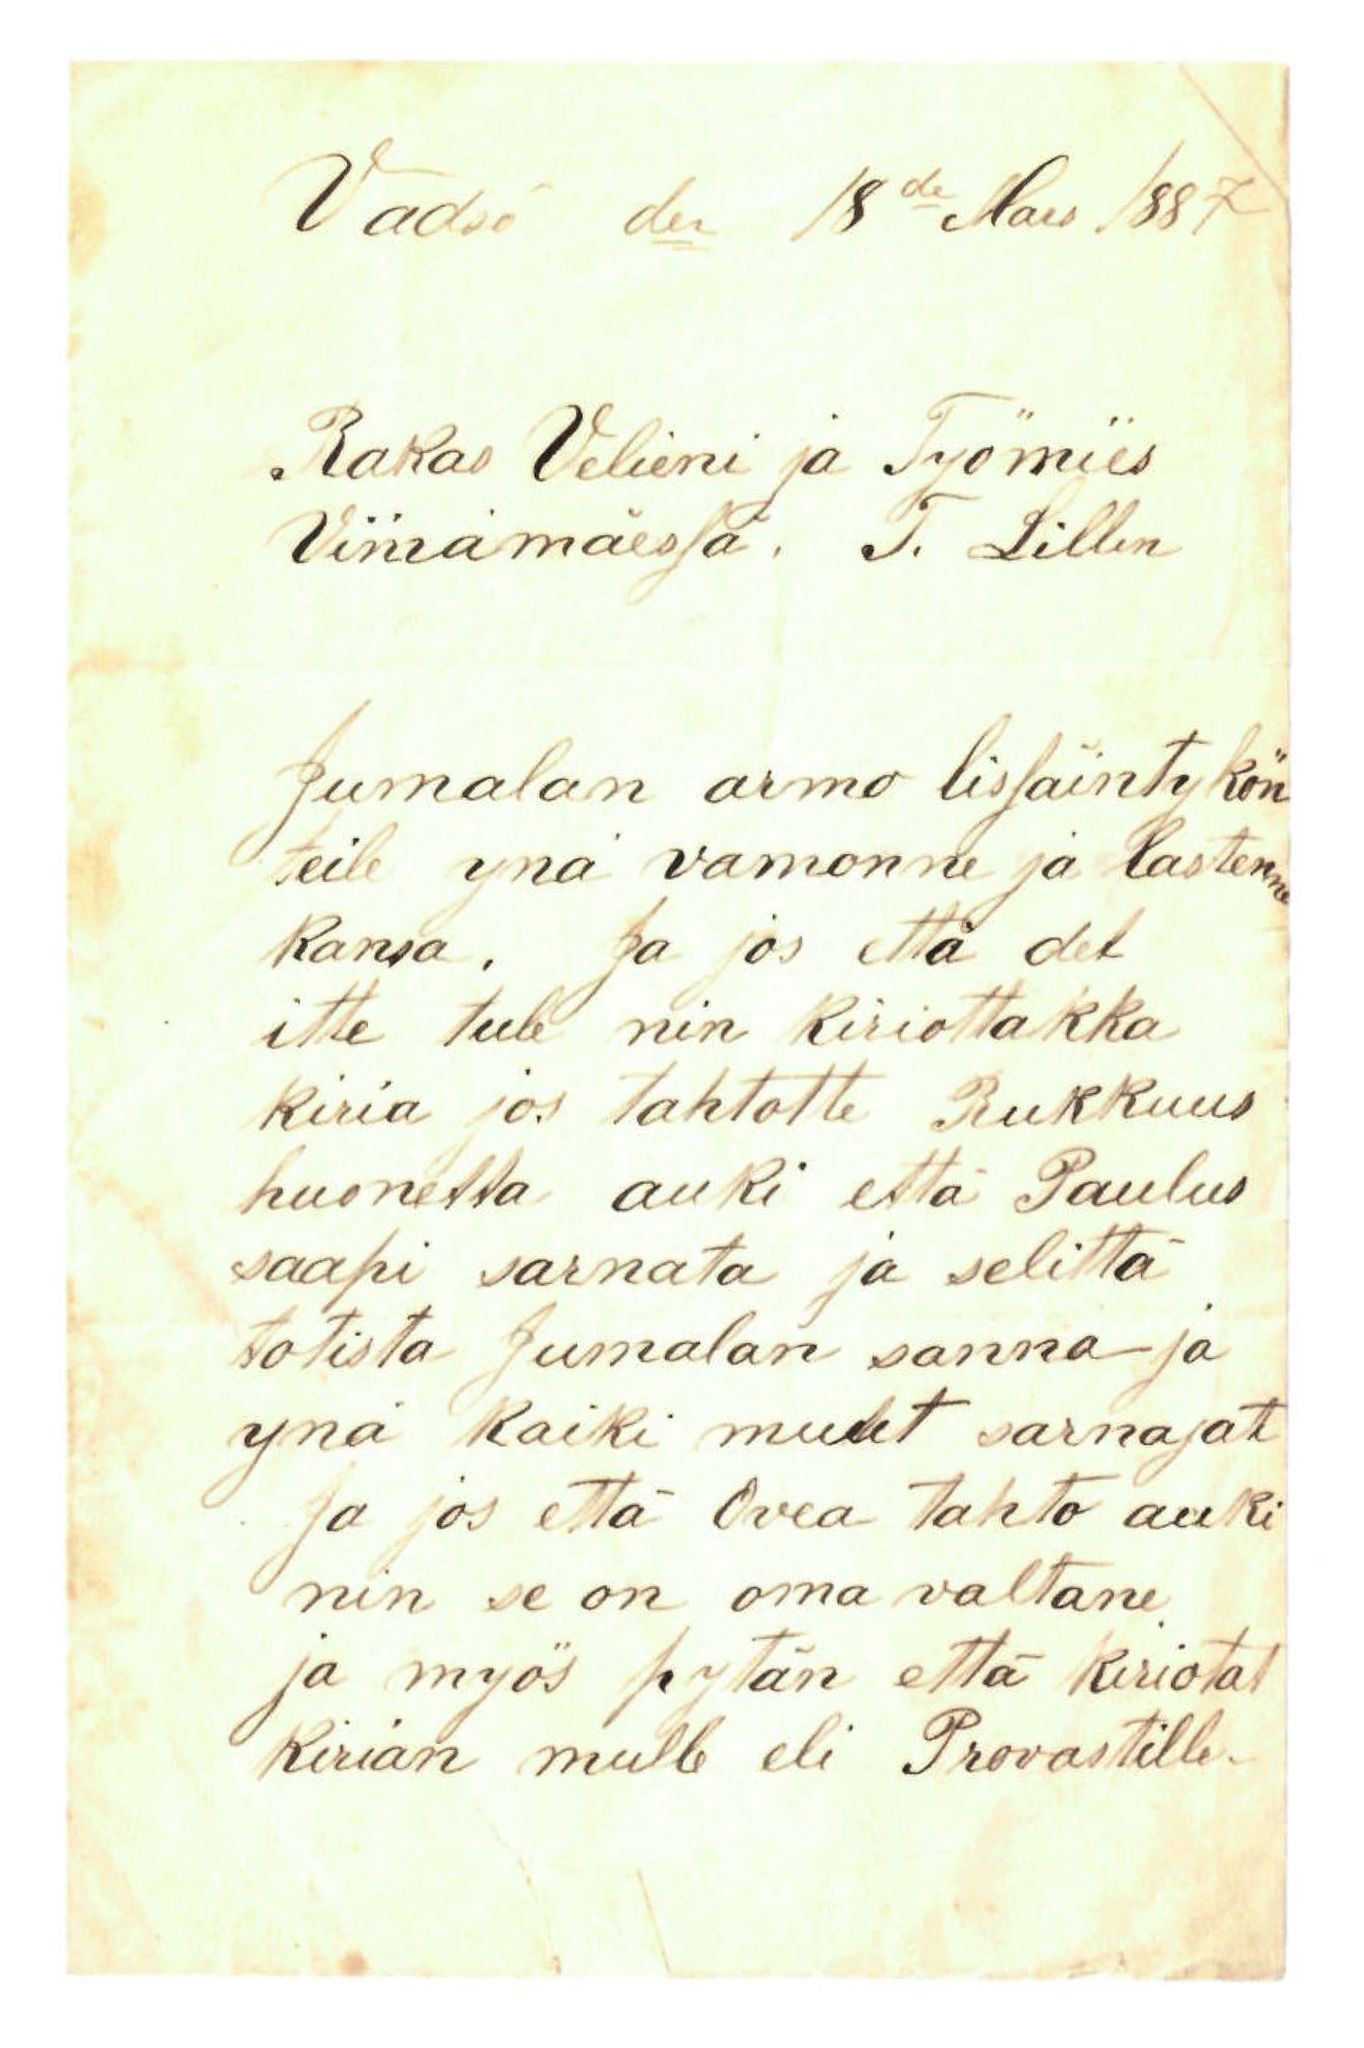 Vadsö den 18de Mars 1887
Rakas Velieni ja Työmies
Viinamäessä. T. Lillen
Jumalan armo lissäintykön
teile ynä vamonne ja lastenne
kansa. Ja jos että det
itte tule nin kiriottakka
kiria jos tahtotte Rukkuus
huonetta auki että Paulus
saapi sarnata ja selittä
totista Jumalan sanna ja
ynä kaiki muut sarnajat
Ja jos että Ovea tahto auki
nin se on oma valtane
ja myös pytän että kiriotat
kirian mulle eli Provastille.